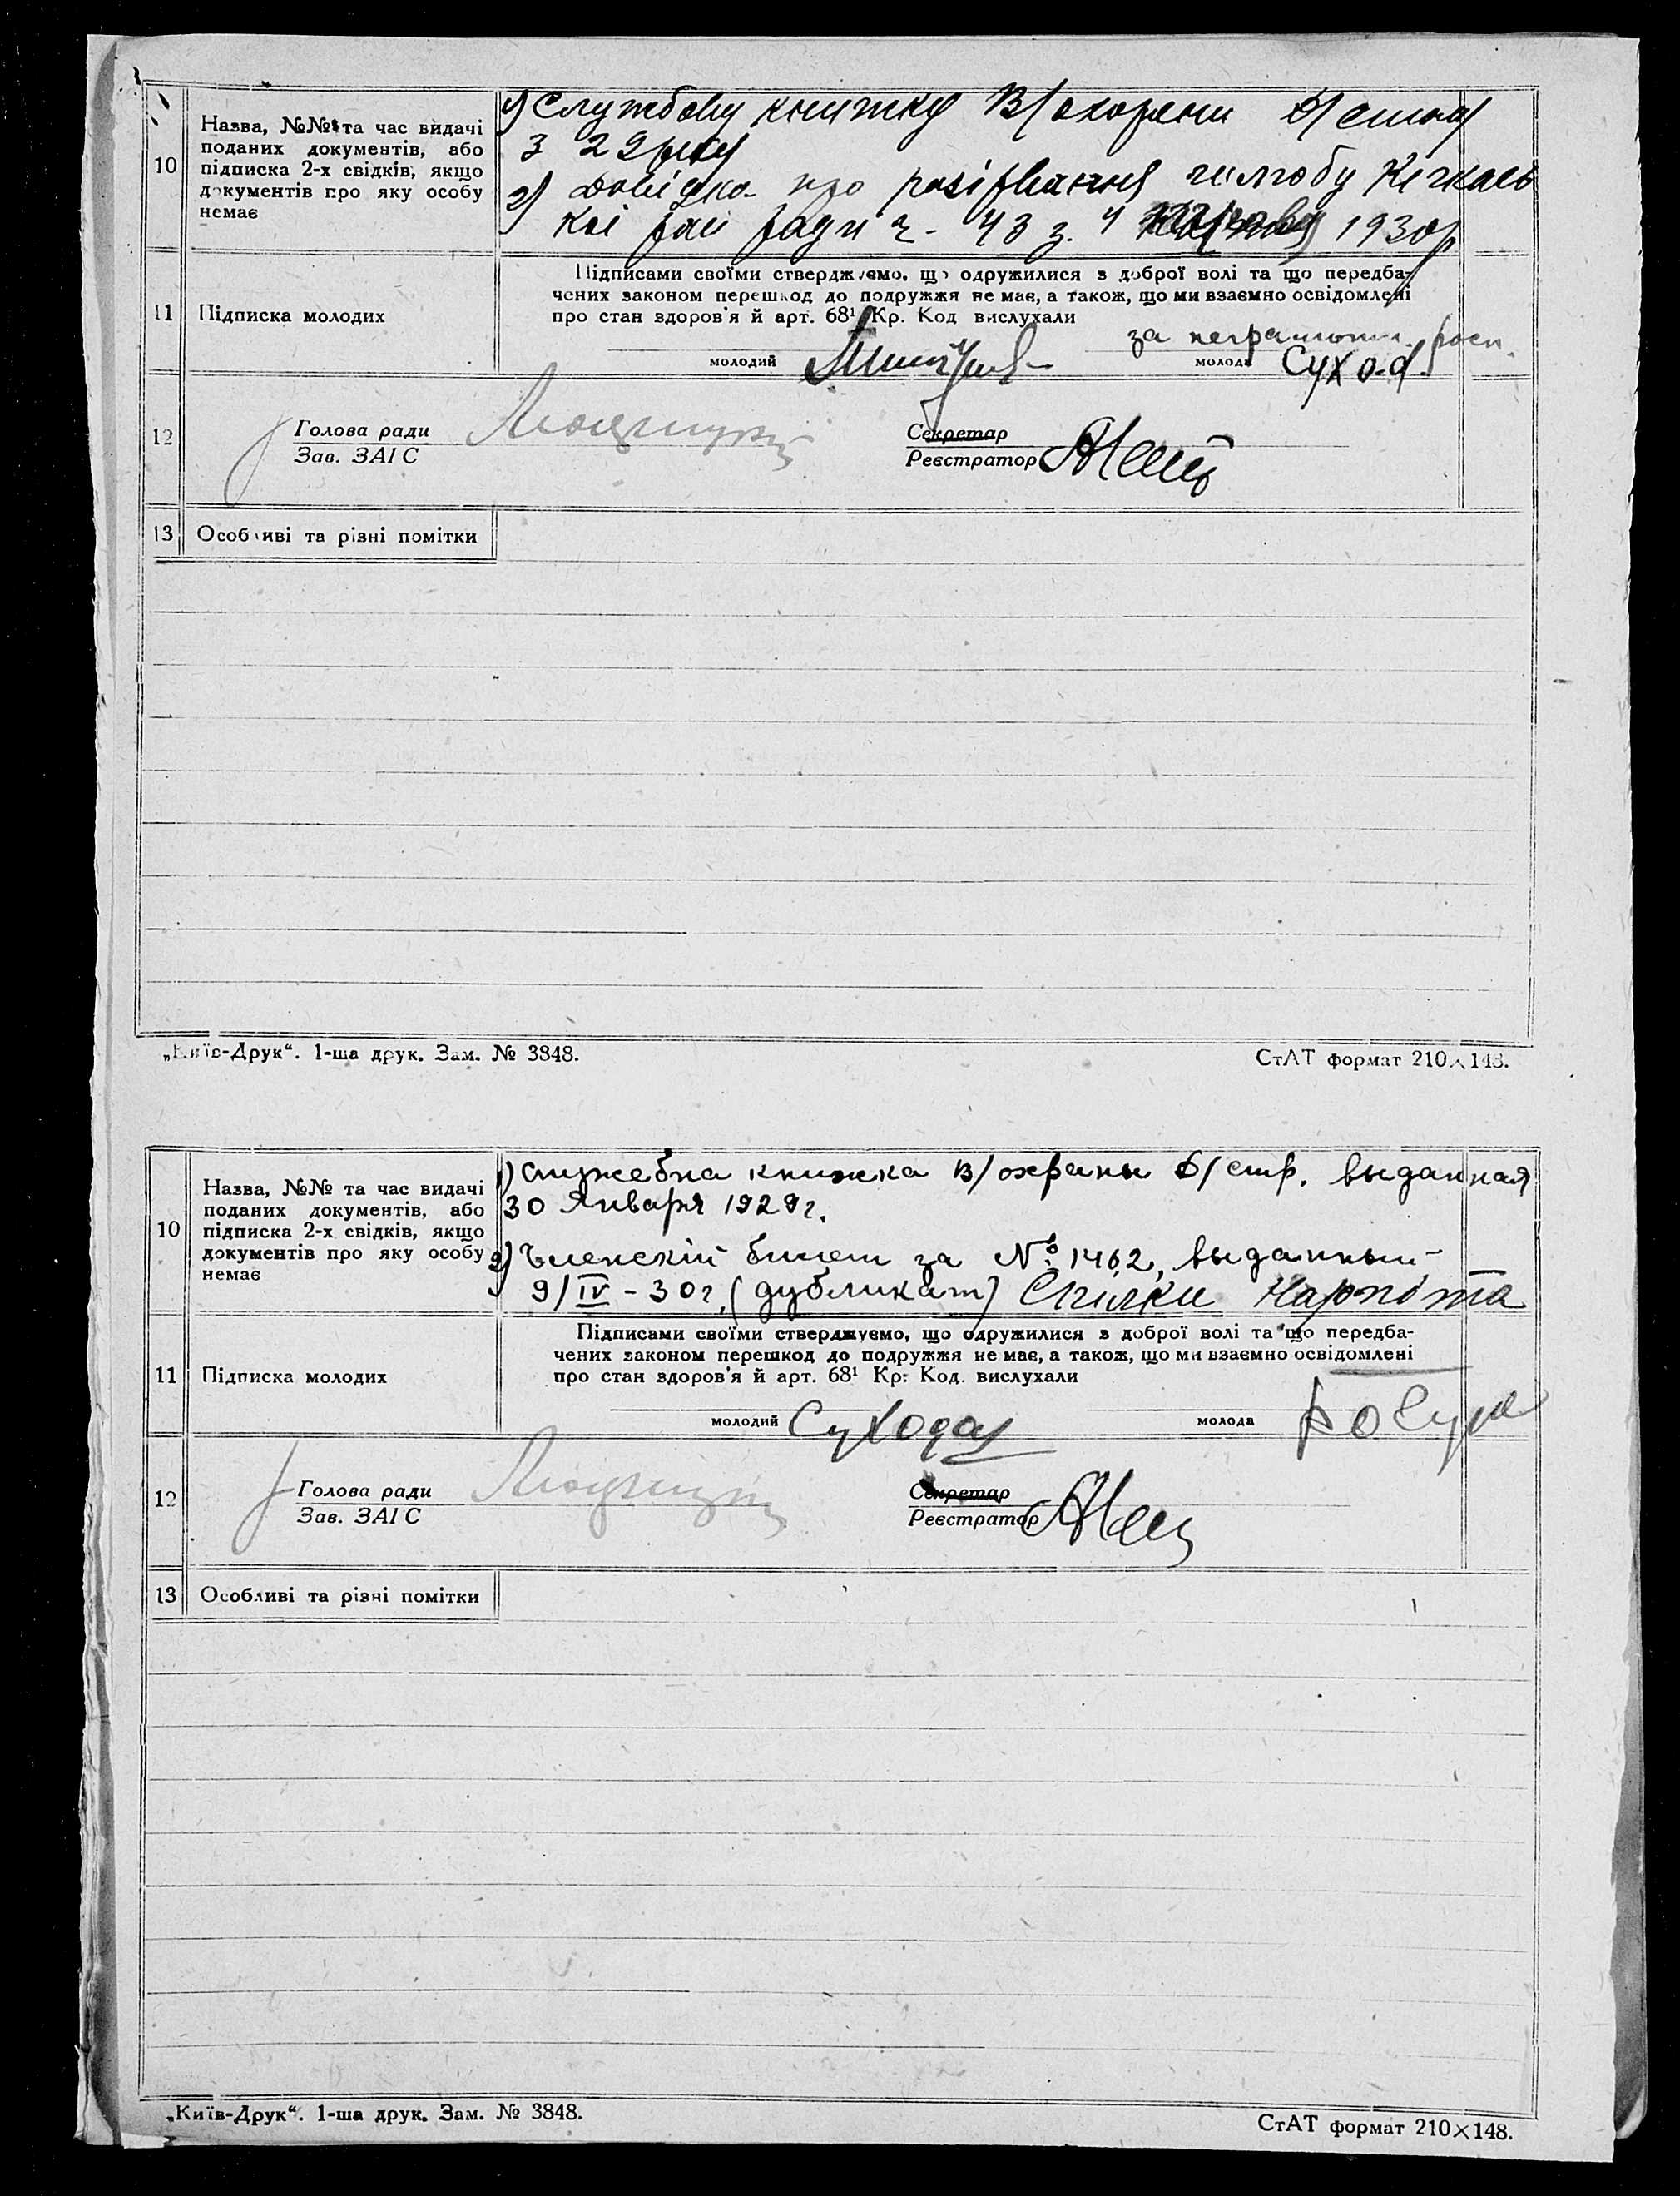 10
Назва, №№ та час видачі
поданих документів, або
підписка 2-х свідків, якщо
документів про яку особу
немає
1) Службову книжку В/охорони
з 29 року
2) Довідка про розірвання шлюбу Кічкась
кої рай ради ч. 43 з. 4 1930р
11
Підписка молодих
Підписами своїми стверджуємо, що одружилися з доброї волі та що передба-
чених законом перешкод до подружжя не має, а також, що ми взаємно освідомлені
про стан здоров'я й арт. 68¹ Кр. Код вислухали
за неграмотн. росп.
молодий
молода Суход.
12
Голова ради
Зав. ЗАГС
Секретар
Реєстратор
13
Особливі та різні помітки
„Київ-Друк“. 1-ша друк. Зам. № 3848.
СтАТ формат 210×148.
10
Назва, №№ та час видачі
поданих документів, або
підписка 2-х свідків, якщо
документів про яку особу
немає
1) Служебна книжка в/охраны б/стр. выданная
30 Января 1929г.
2) Членский билет за № 1462, выданный
9/IV - 30г. (дубликат) Спілки Нарпіта
11
Підписка молодих
Підписами своїми стверджуємо, що одружилися з доброї волі та що передба-
чених законом перешкод до подружжя не має, а також, що ми взаємно освідомлені
про стан здоров'я й арт. 68¹ Кр: Код. вислухали
молодий Суходол
молода
12
Голова ради
Зав. ЗАГС
Секретар
Реєстратор
13
Особливі та різні помітки
„Київ-Друк“. 1-ша друк. Зам. № 3848.
СтАТ формат 210×148.